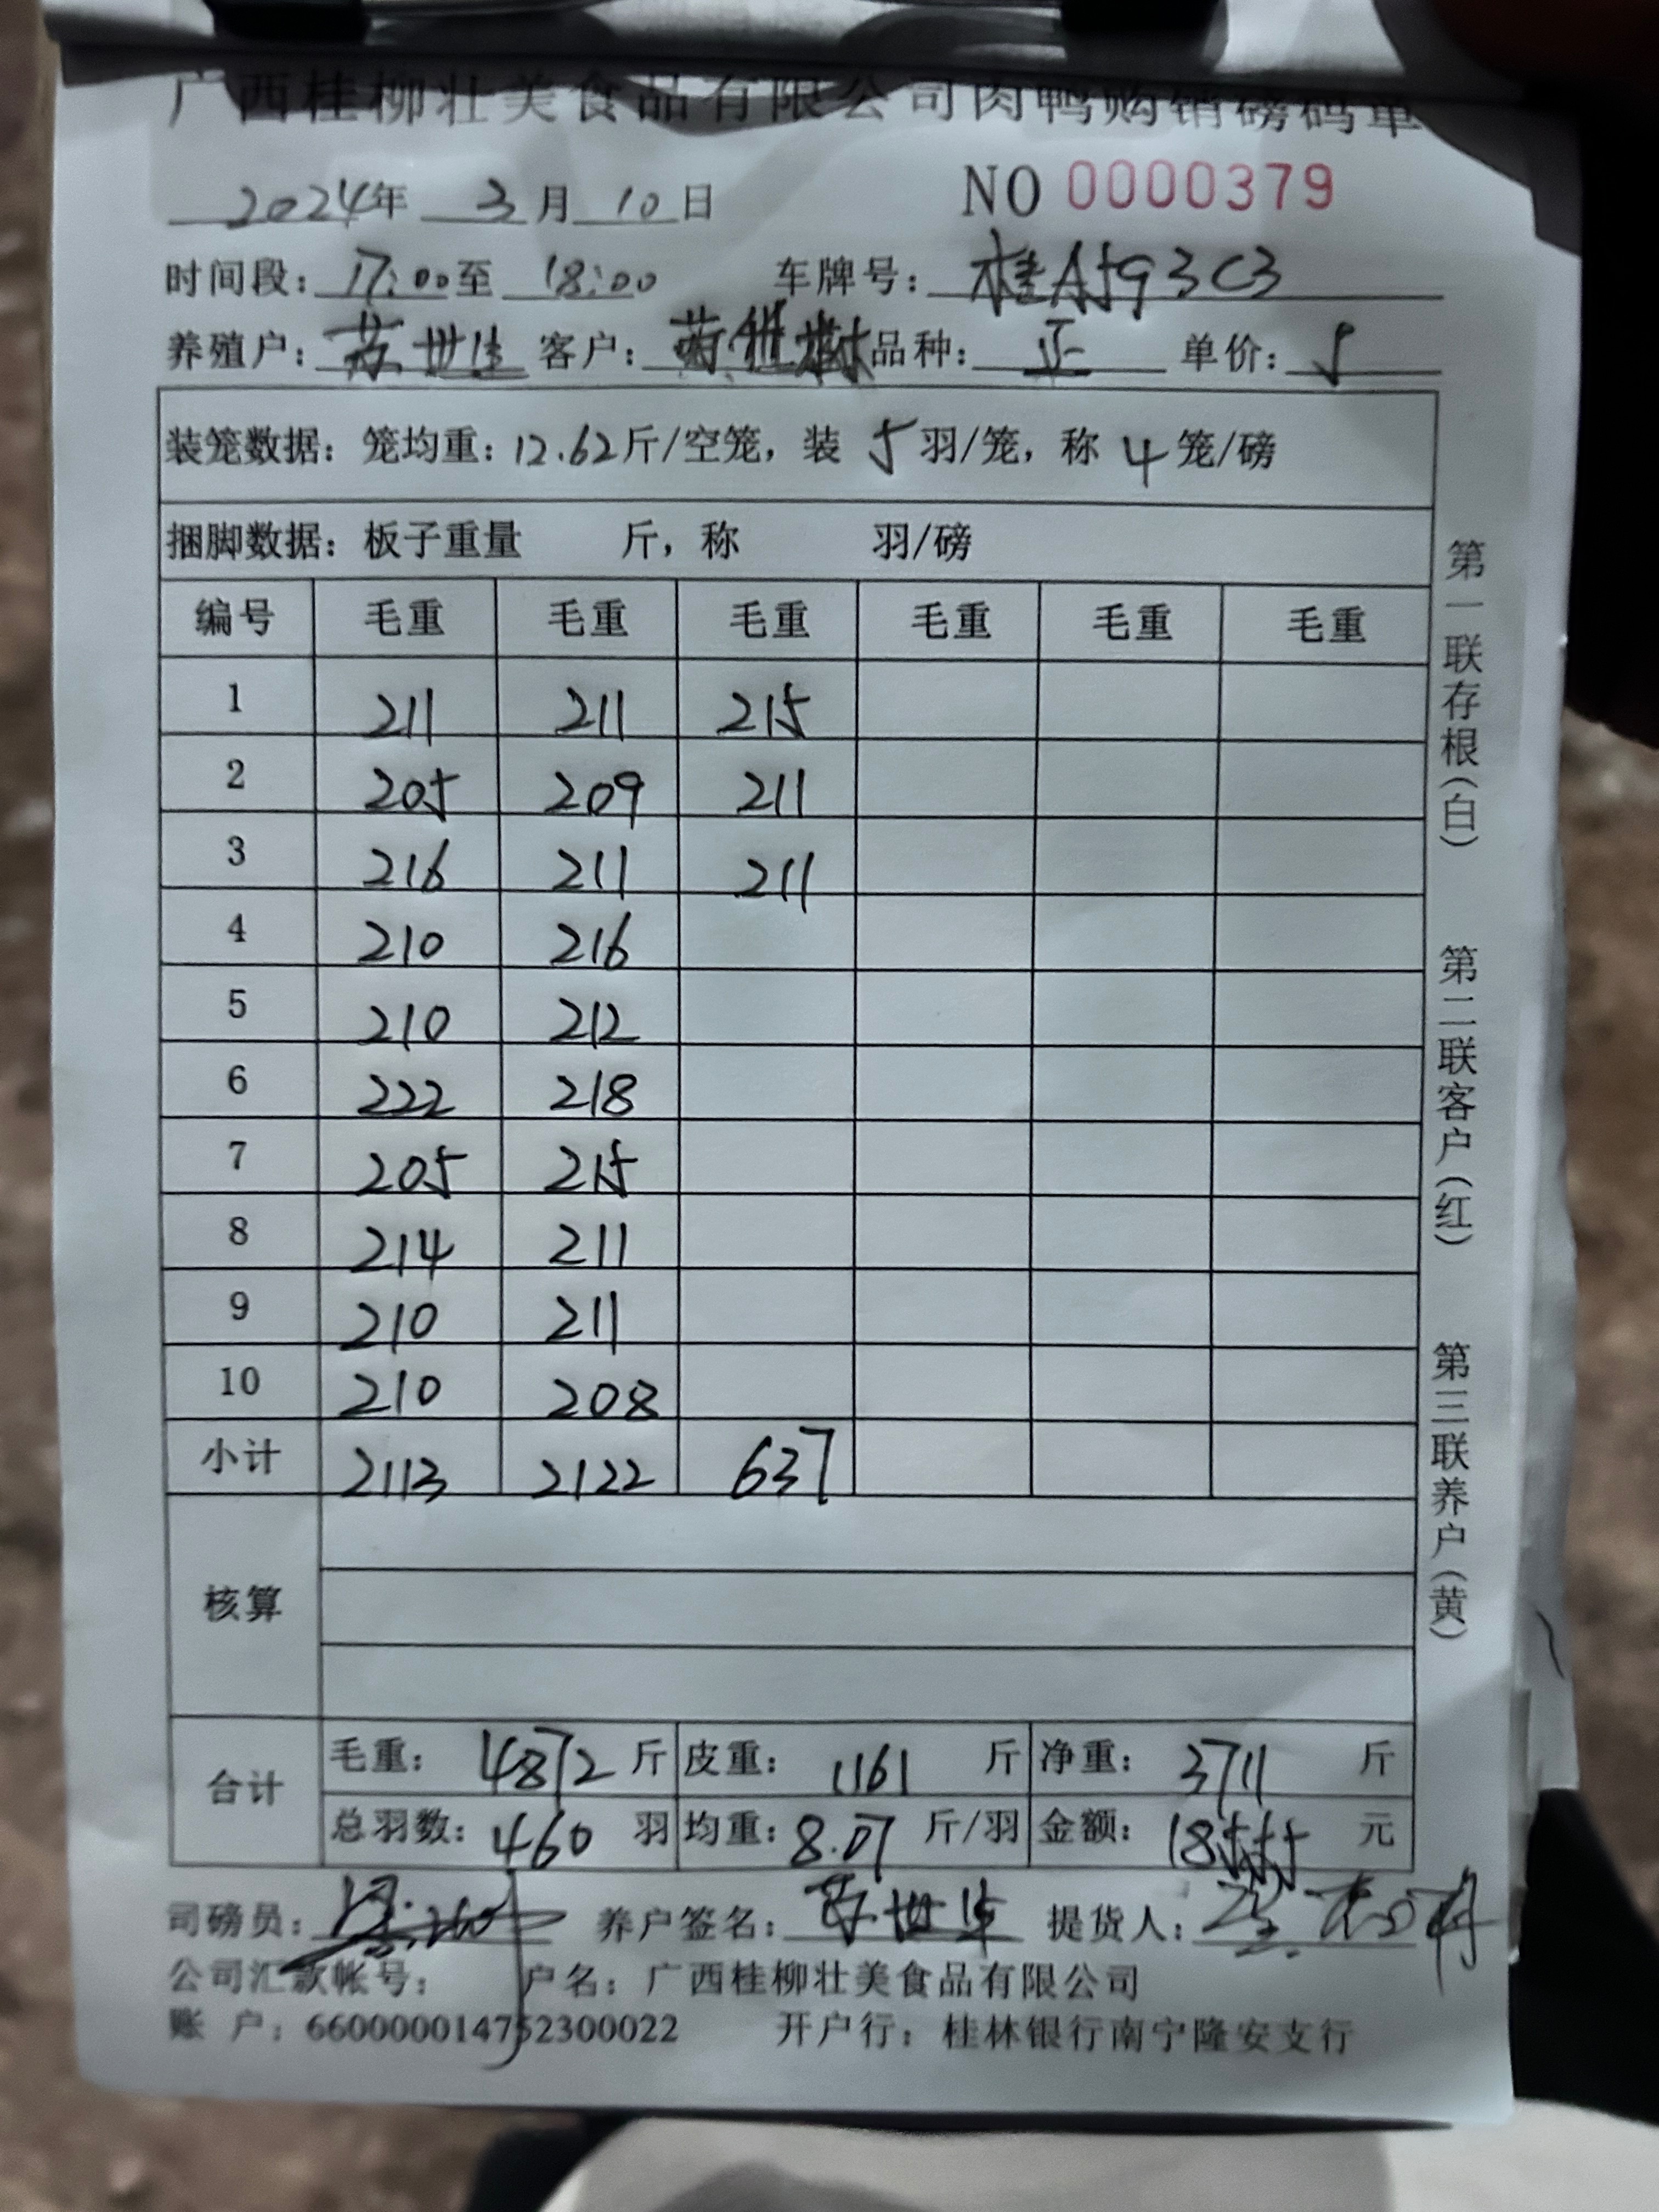 广西桂柳壮美食品有限公司肉鸭购销磅码单
2024年 3月10日 NO 0000379
时间段：17:00至 18:00 车牌号：桂AJ93C3
养殖户：苏世生 客户： 品种：正 单价：5
装笼数据：笼均重：12.62斤/空笼，装 5 羽/笼，称 4 笼/磅
捆脚数据：板子重量 斤，称 羽/磅
编号 毛重 毛重 毛重 毛重 毛重 毛重
1 211 211 215
2 205 209 211
3 216 211 211
4 210 216
5 210 212
6 222 218
7 205 215
8 214 211
9 210 211
10 210 208
小计 2113 2122 637
核算
合计
毛重：4872斤 皮重：1161斤 净重：3711斤
总羽数：460 羽 均重：8.07 斤/羽 金额：18555 元
司磅员： 养户签名：苏世生 提货人：
公司汇款帐号： 户名：广西桂柳壮美食品有限公司
账 户：660000014752300022 开户行：桂林银行南宁隆安支行
第一联存根（白）
第二联客户（红）
第三联养户（黄）